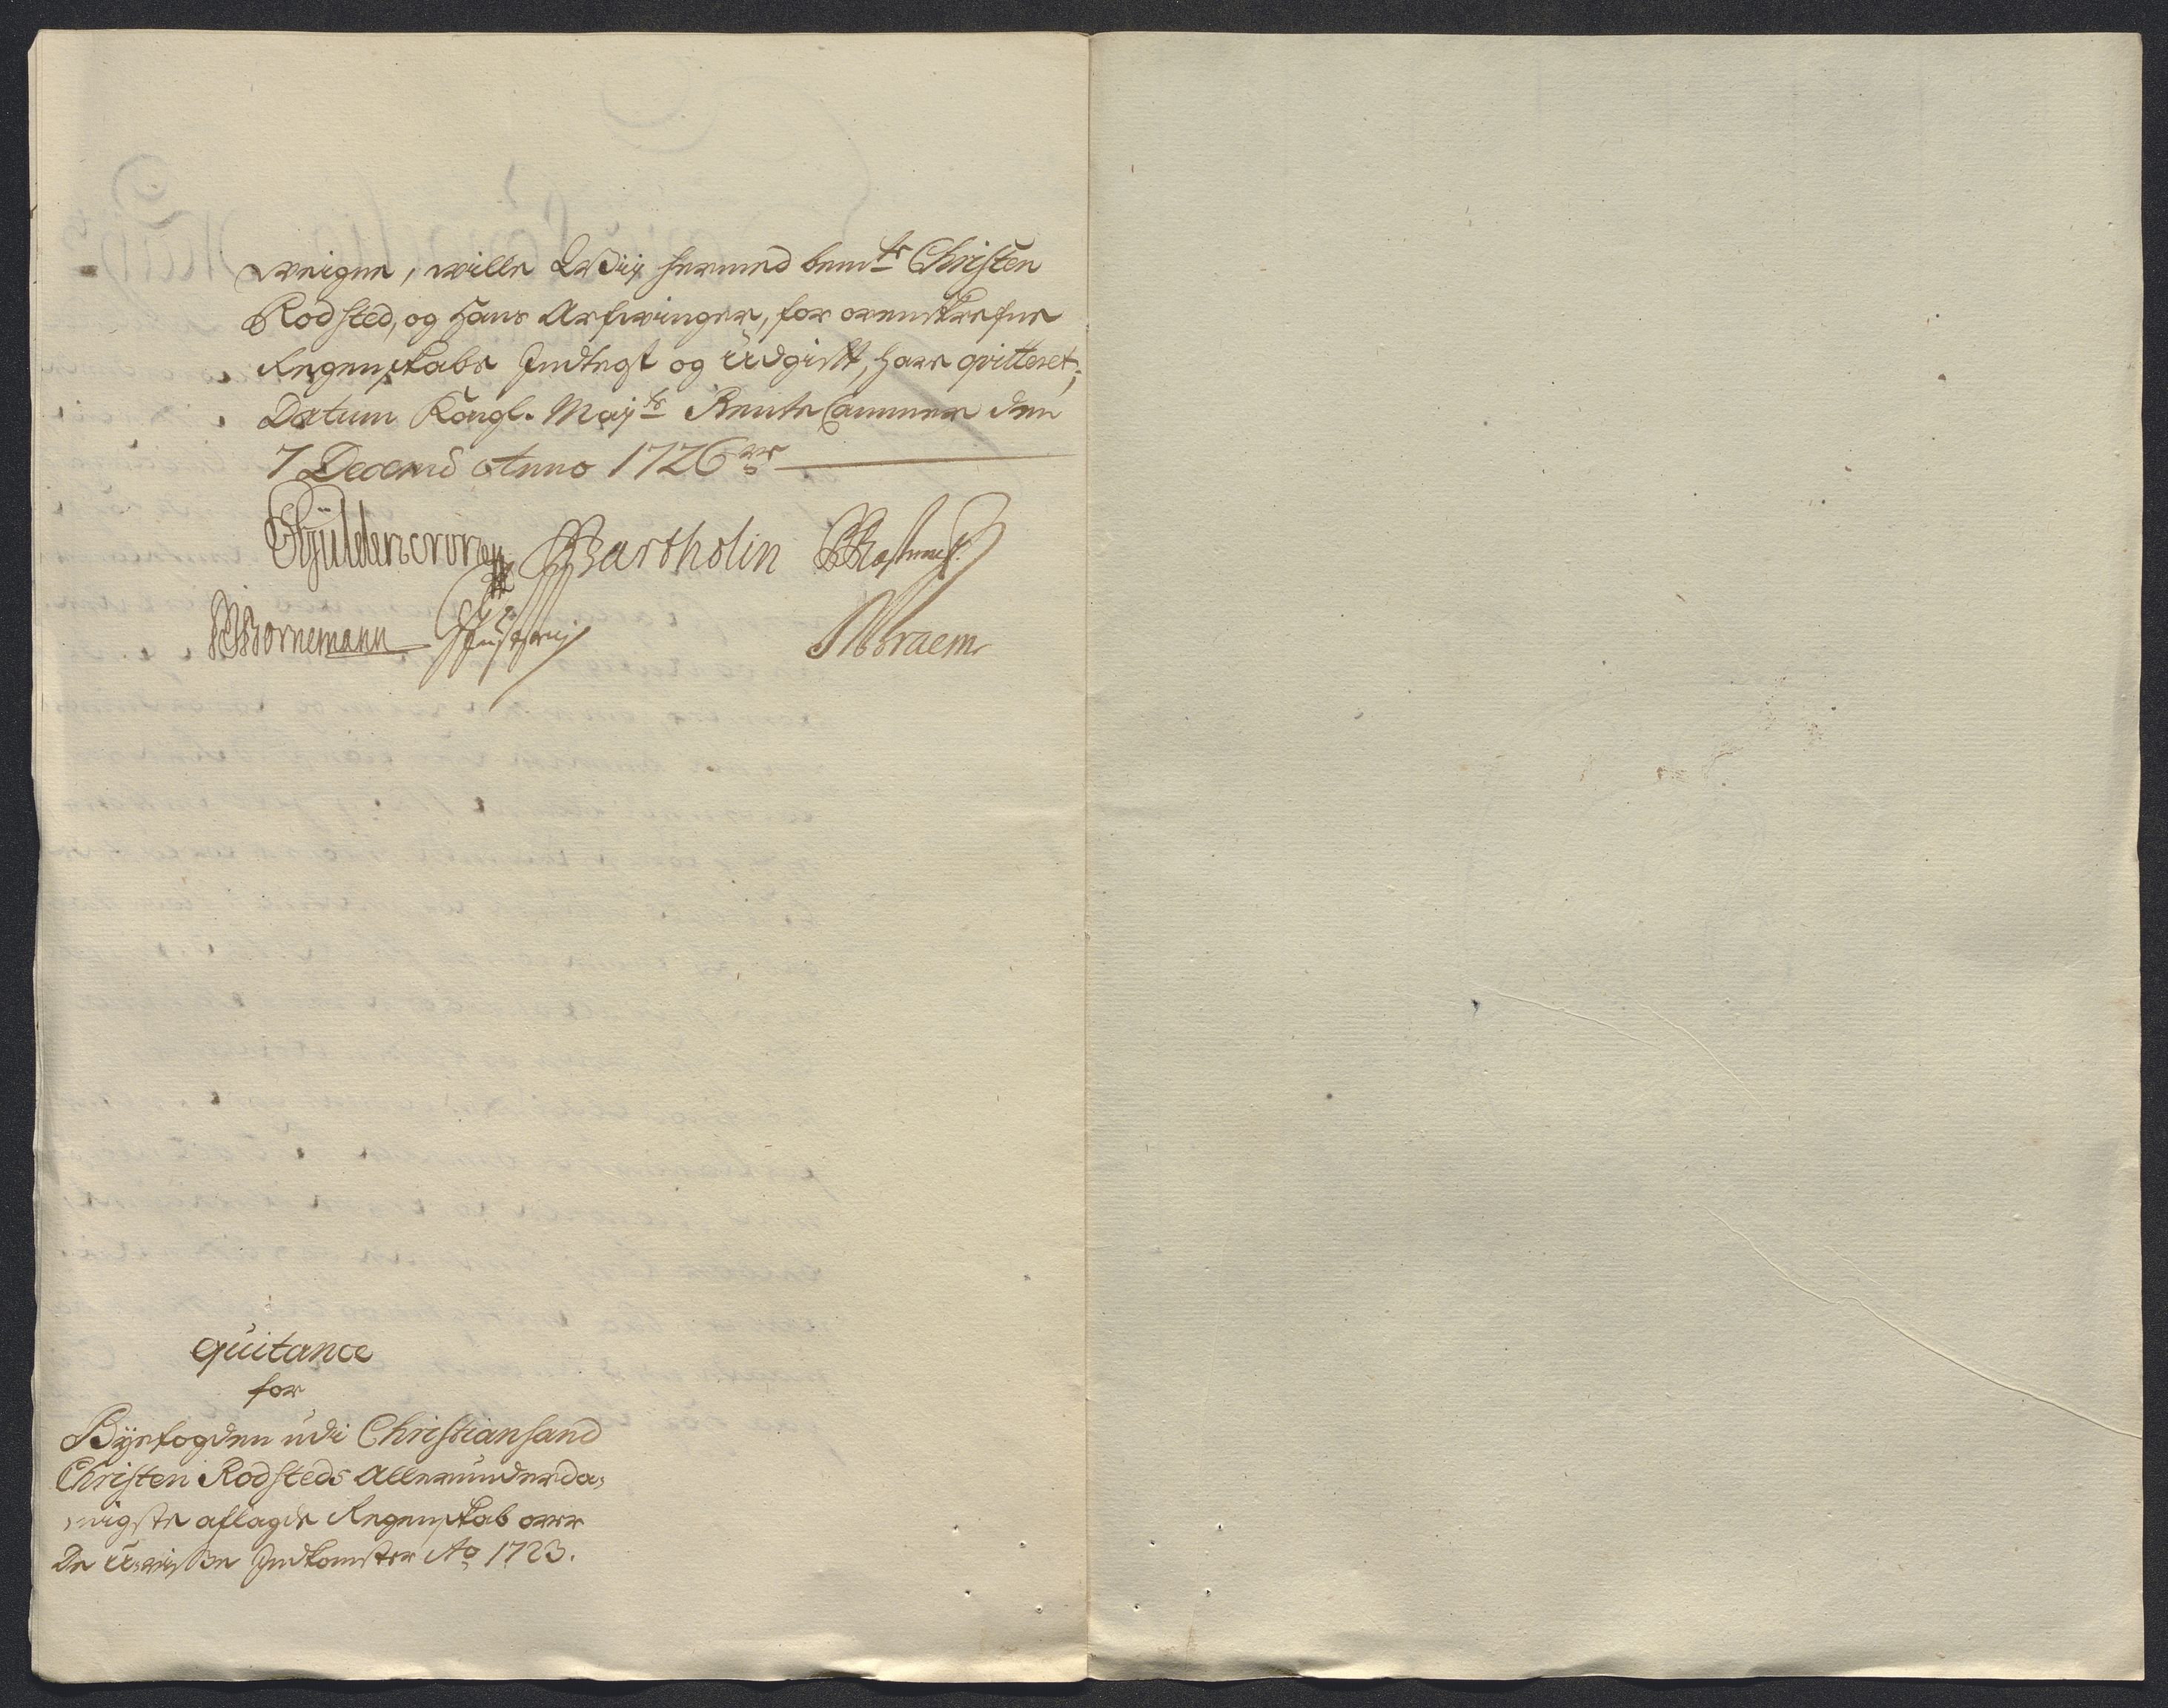 weigne, wille Wii hermed bemte Christen
Rodsted, og Hans Arfwinger, for ovenskrefne
Regenskabs Indtegt og Udgift, have qvitteret;
Datum Kongl. Mayts Rente Cammer den
7 Decemb Anno 1726
Gÿldencrone Bartholin
Bornemann Braem
Quitance
for
Bÿefogden udi Christiansand
Christen Rodsteds Allerunderda-
nigste aflagde Regenskab over
De Uvisse Indkomster Ao 1723.